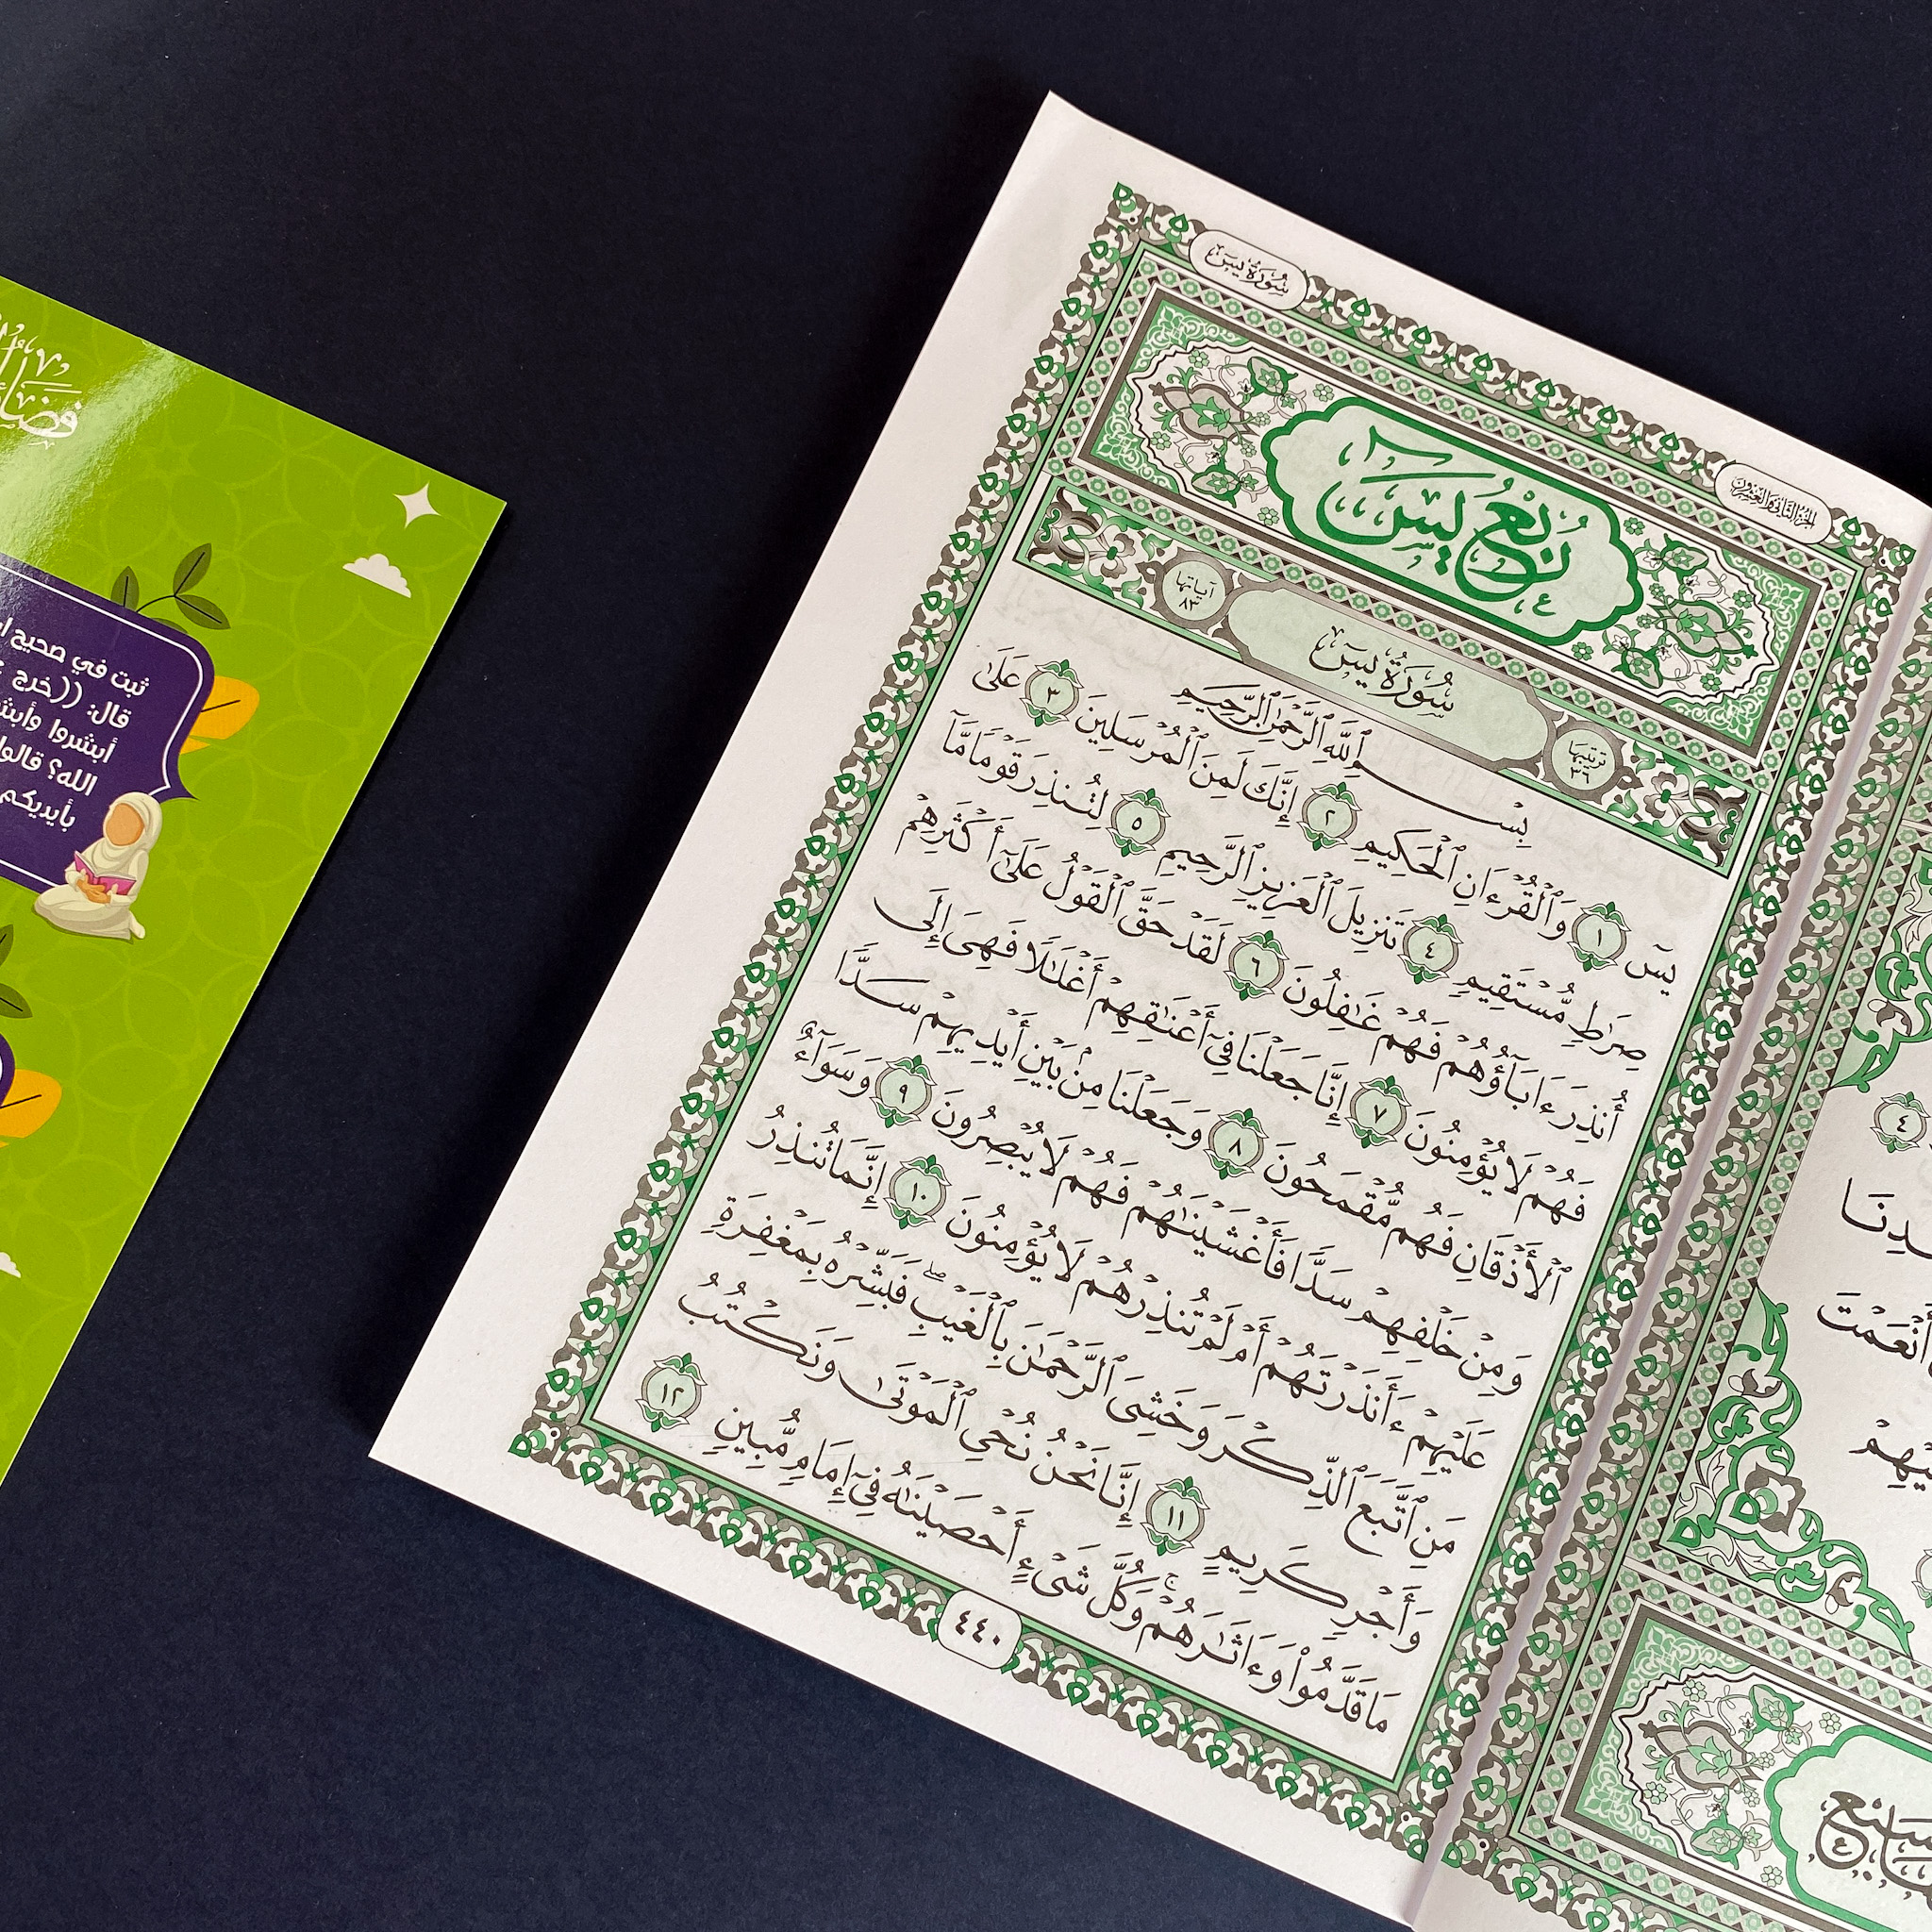 سُورَةُ يسٓ
الجزء الثاني والعشرون
رُبْعُ يسٓ
ترتيبها ٣٦
سُورَةُ يسٓ
آياتها ٨٣
بِسْمِ ٱللَّهِ ٱلرَّحْمَٰنِ ٱلرَّحِيمِ
يسٓ ١ وَٱلْقُرْءَانِ ٱلْحَكِيمِ ٢ إِنَّكَ لَمِنَ ٱلْمُرْسَلِينَ ٣ عَلَىٰ
صِرَٰطٍ مُّسْتَقِيمٍ ٤ تَنزِيلَ ٱلْعَزِيزِ ٱلرَّحِيمِ ٥ لِتُنذِرَ قَوْمًا مَّآ
أُنذِرَ ءَابَآؤُهُمْ فَهُمْ غَٰفِلُونَ ٦ لَقَدْ حَقَّ ٱلْقَوْلُ عَلَىٰٓ أَكْثَرِهِمْ
فَهُمْ لَا يُؤْمِنُونَ ٧ إِنَّا جَعَلْنَا فِىٓ أَعْنَٰقِهِمْ أَغْلَٰلًا فَهِىَ إِلَى
ٱلْأَذْقَانِ فَهُم مُّقْمَحُونَ ٨ وَجَعَلْنَا مِنۢ بَيْنِ أَيْدِيهِمْ سَدًّا
وَمِنْ خَلْفِهِمْ سَدًّا فَأَغْشَيْنَٰهُمْ فَهُمْ لَا يُبْصِرُونَ ٩ وَسَوَآءٌ
عَلَيْهِمْ ءَأَنذَرْتَهُمْ أَمْ لَمْ تُنذِرْهُمْ لَا يُؤْمِنُونَ ١٠ إِنَّمَا تُنذِرُ
مَنِ ٱتَّبَعَ ٱلذِّكْرَ وَخَشِىَ ٱلرَّحْمَٰنَ بِٱلْغَيْبِ ۖ فَبَشِّرْهُ بِمَغْفِرَةٍ
وَأَجْرٍ كَرِيمٍ ١١ إِنَّا نَحْنُ نُحْىِ ٱلْمَوْتَىٰ وَنَكْتُبُ
مَا قَدَّمُوا۟ وَءَاثَٰرَهُمْ ۚ وَكُلَّ شَىْءٍ أَحْصَيْنَٰهُ فِىٓ إِمَامٍ مُّبِينٍ ١٢
٤٤٠
ثبت في صحيح
قال: ((خرج
أبشروا
الله؟ قالوا
بأيديكم
٤
أَنْعَمْتَ